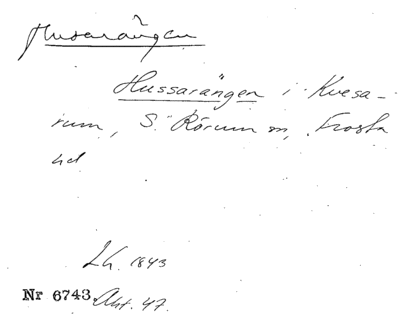 Husarängen
Hussarängen i Kvesa-
rum, S. Rörum sn, Frosta
hd
Lh. 1843
Nr 6743 Akt. 47.